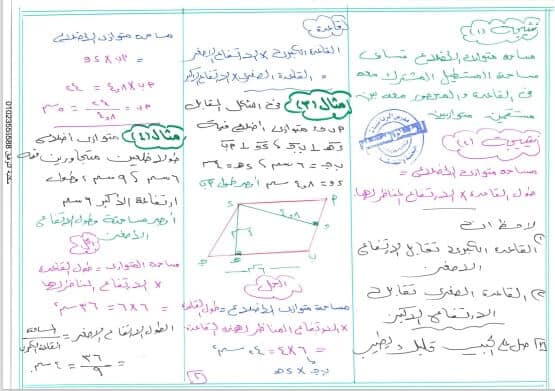 نتيجة (١)
مساحة متوازى الأضلاع تساوى
مساحة المستطيل المشترك معه
فى القاعدة والمحصور معه بين
مستقيمين متوازيين
نتيجة (٢)
مساحة متوازى الأضلاع =
طول القاعدة × الارتفاع المناظر لها
ملاحظات
القاعدة الكبرى تقابل الارتفاع
الأصغر
القاعدة الصغرى تقابل
الارتفاع الأكبر
قاعدة
القاعدة الكبرى × الارتفاع الأصغر
= القاعدة الصغرى × الارتفاع الأكبر
مثال (٣) فى الشكل المقابل
متوازى أضلاع فيه
ب ج = ٦ سم ، د ه = ٤
د و = ٤,٨ سم أوجد طول
٤,٨
الحل
مساحة متوازى الأضلاع = طول القاعدة
× الارتفاع المناظر لهذه القاعدة
= ٦ × ٤ = ٢٤ سم٢
ب ج × د ه
مساحة متوازى الأضلاع
= × د و
× ٤,٨ = ٢٤
= ٢٤ / ٤,٨ = ٥ سم
مثال (٤) متوازى أضلاع
طولا ضلعين متجاورين فيه
٦ سم ، ٩ سم وطول
ارتفاعه الأكبر ٦ سم
أوجد مساحته وطول الارتفاع
الأصغر
الحل
مساحة المتوازى = طول القاعدة
× الارتفاع المناظر لها
= ٦ × ٦ = ٣٦ سم٢
طول الارتفاع الأصغر = المساحة / القاعدة الكبرى
= ٣٦ / ٩ = ٤ سم